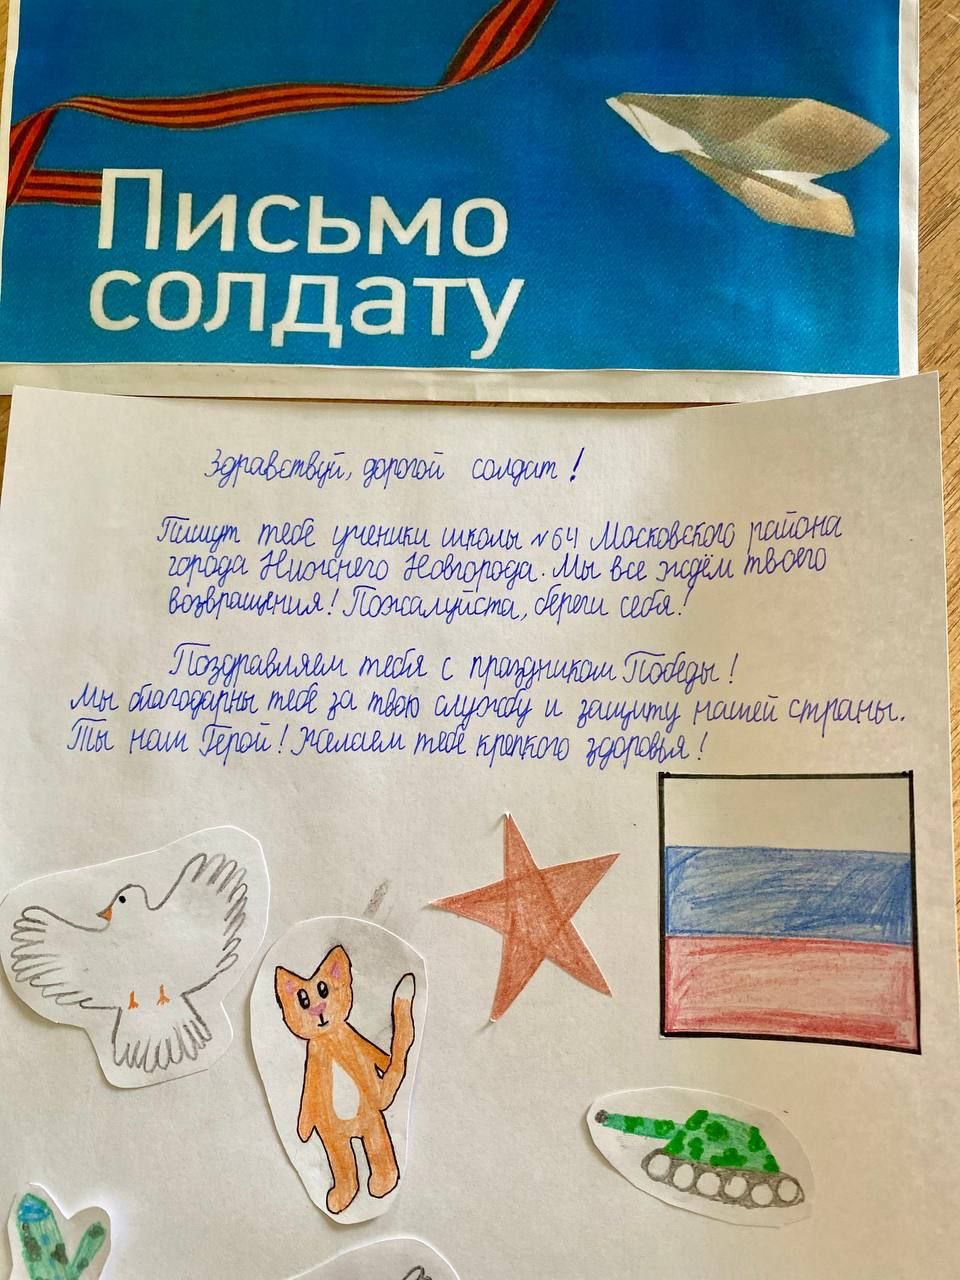 Письмо
солдату
Здравствуй, дорогой солдат!
Пишут тебе ученики школы №64 Московского района
города Нижнего Новгорода. Мы все ждём твоего
возвращения! Пожалуйста, береги себя!
Поздравляем тебя с праздником Победы!
Мы благодарны тебе за твою службу и защиту нашей страны.
Ты наш Герой! Желаем тебе крепкого здоровья!